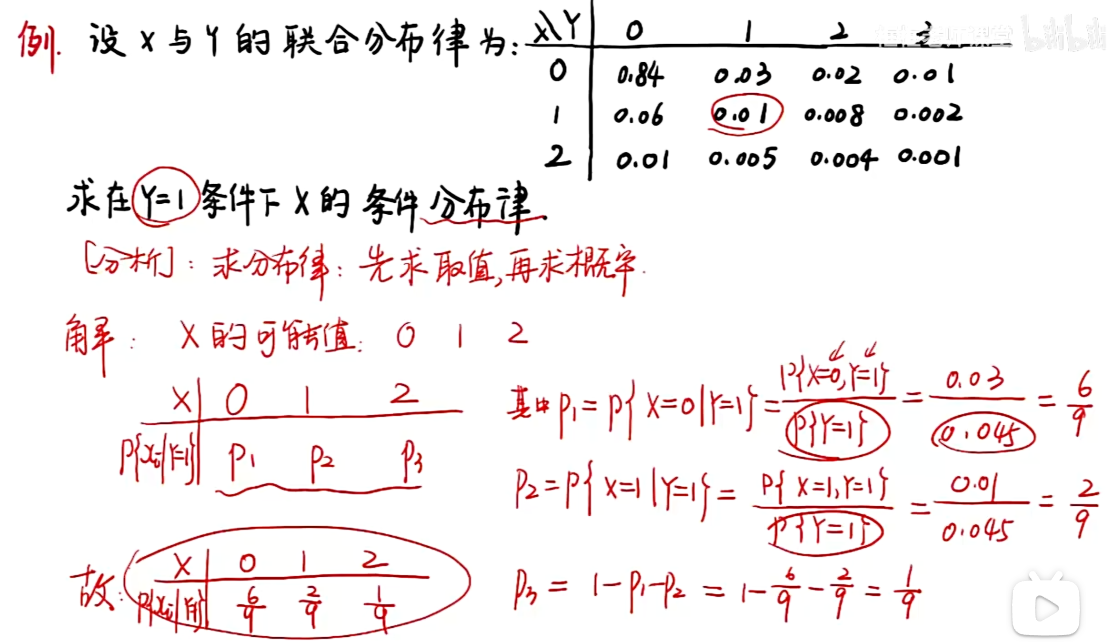 例. 设 X 与 Y 的联合分布律为:
X\Y 0 1 2
0 0.84 0.03 0.02 0.01
1 0.06 0.01 0.008 0.002
2 0.01 0.005 0.004 0.001
求在 Y=1 条件下 X 的 条件分布律.
[分析]: 求分布律: 先求取值,再求概率.
解: X 的可能值: 0 1 2
X 0 1 2
P{xᵢ|Y=1} p₁ p₂ p₃
其中 p₁ = P{X=0|Y=1} = P{X=0,Y=1}/P{Y=1} = 0.03/0.045 = 6/9
p₂ = P{X=1|Y=1} = P{X=1,Y=1}/P{Y=1} = 0.01/0.045 = 2/9
p₃ = 1-p₁-p₂ = 1-6/9-2/9 = 1/9
故:
X 0 1 2
6/9 2/9 1/9
bilibili